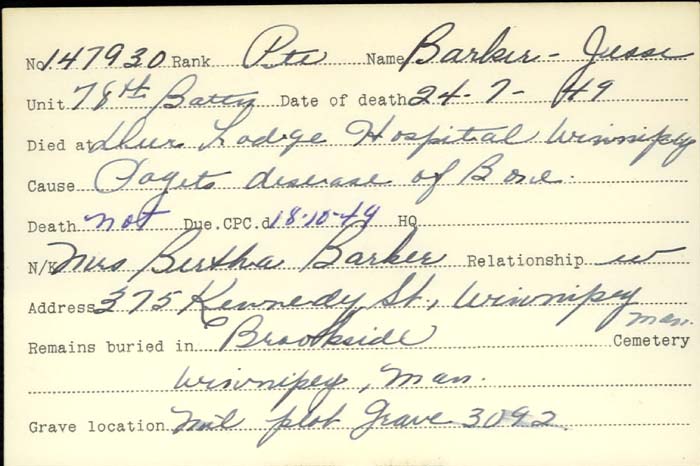 No. 147930 Rank Pte Name Barker - Jesse
Unit 78th Battn Date of death 24-7-49
Died at Deer Lodge Hospital Winnipeg
Cause Pagets disease of Bone.
Death not Due.CPC.d 18-10-49 HQ
N/K Mrs Bertha Barker Relationship w
Address 375 Kennedy St., Winnipeg
Man.
Remains buried in Brookside Cemetery
Winnipeg, Man.
Grave location Mil plot Grave 3092